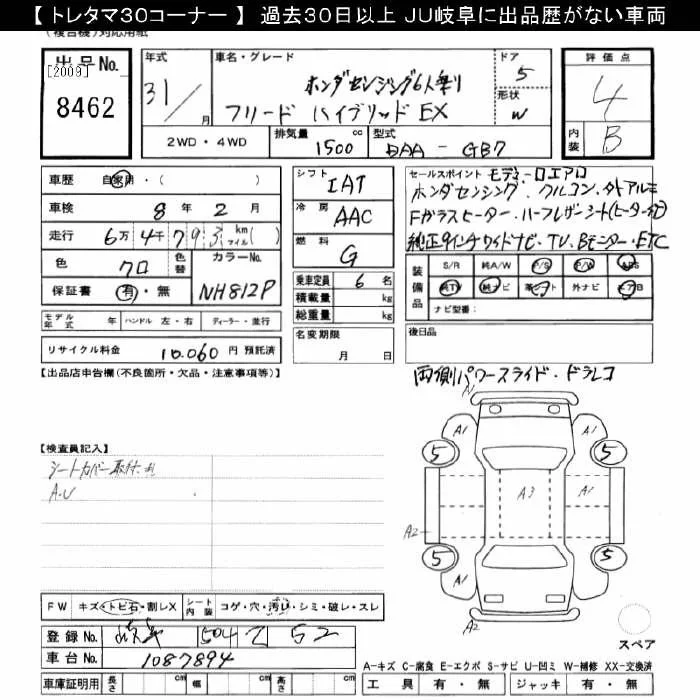 【 トレタマ30コーナー 】 過去30日以上 JU岐阜に出品歴がない車両
(複合機)対応用紙
出品No.
[2009]
8462
年式
31/月
車名・グレード
ホンダセンシング6人乗り
フリード ハイブリッド EX
ドア
5
形状
W
評価点
4
内装
B
2WD・4WD
排気量 1500 cc
型式 DAA - GB7
車歴 自家用・( )
車検 8年 2月
走行 6万4千793 km マイル( )
色 クロ
色替
カラーNo. NH812P
保証書 有・無
モデル年式 年 ハンドル 左・右 ディーラー・並行
リサイクル料金 10.060 円 預託済
シフト IAT
冷房 AAC
燃料 G
乗車定員 6 名
積載量 kg
総重量 kg
名変期限
月 日
セールスポイント モデューロエアロ
ホンダセンシング・クルコン・外アルミ
Fガラスヒーター・ハーフレザーシート(ヒーター付)
純正9インチワイドナビ・TV、Bモニター・ETC
装備品
S/R 純A/W P/S P/W ABS
純TV 純ナビ 革シート 外ナビ エアB
ナビ型番:
後日品
【出品店申告欄(不良箇所・欠品・注意事項等)】
両側パワースライド・ドラレコ
【検査員記入】
シートカバー取付
A.U
A1
A1
5
5
A3
A1
A2
5
5
A1
A2
スペア
FW キズ・トビ石・割レX
シート内装 コゲ・穴・汚レ・シミ・破レ・スレ
登録No. 岐阜 504 セ 52
車台No. 1087894
車庫証明用 長さ cm 幅 cm 高さ cm
A-キズ C-腐食 E-エクボ S-サビ U-凹ミ W-補修 XX-交換済
工具 有・無 ジャッキ 有・無